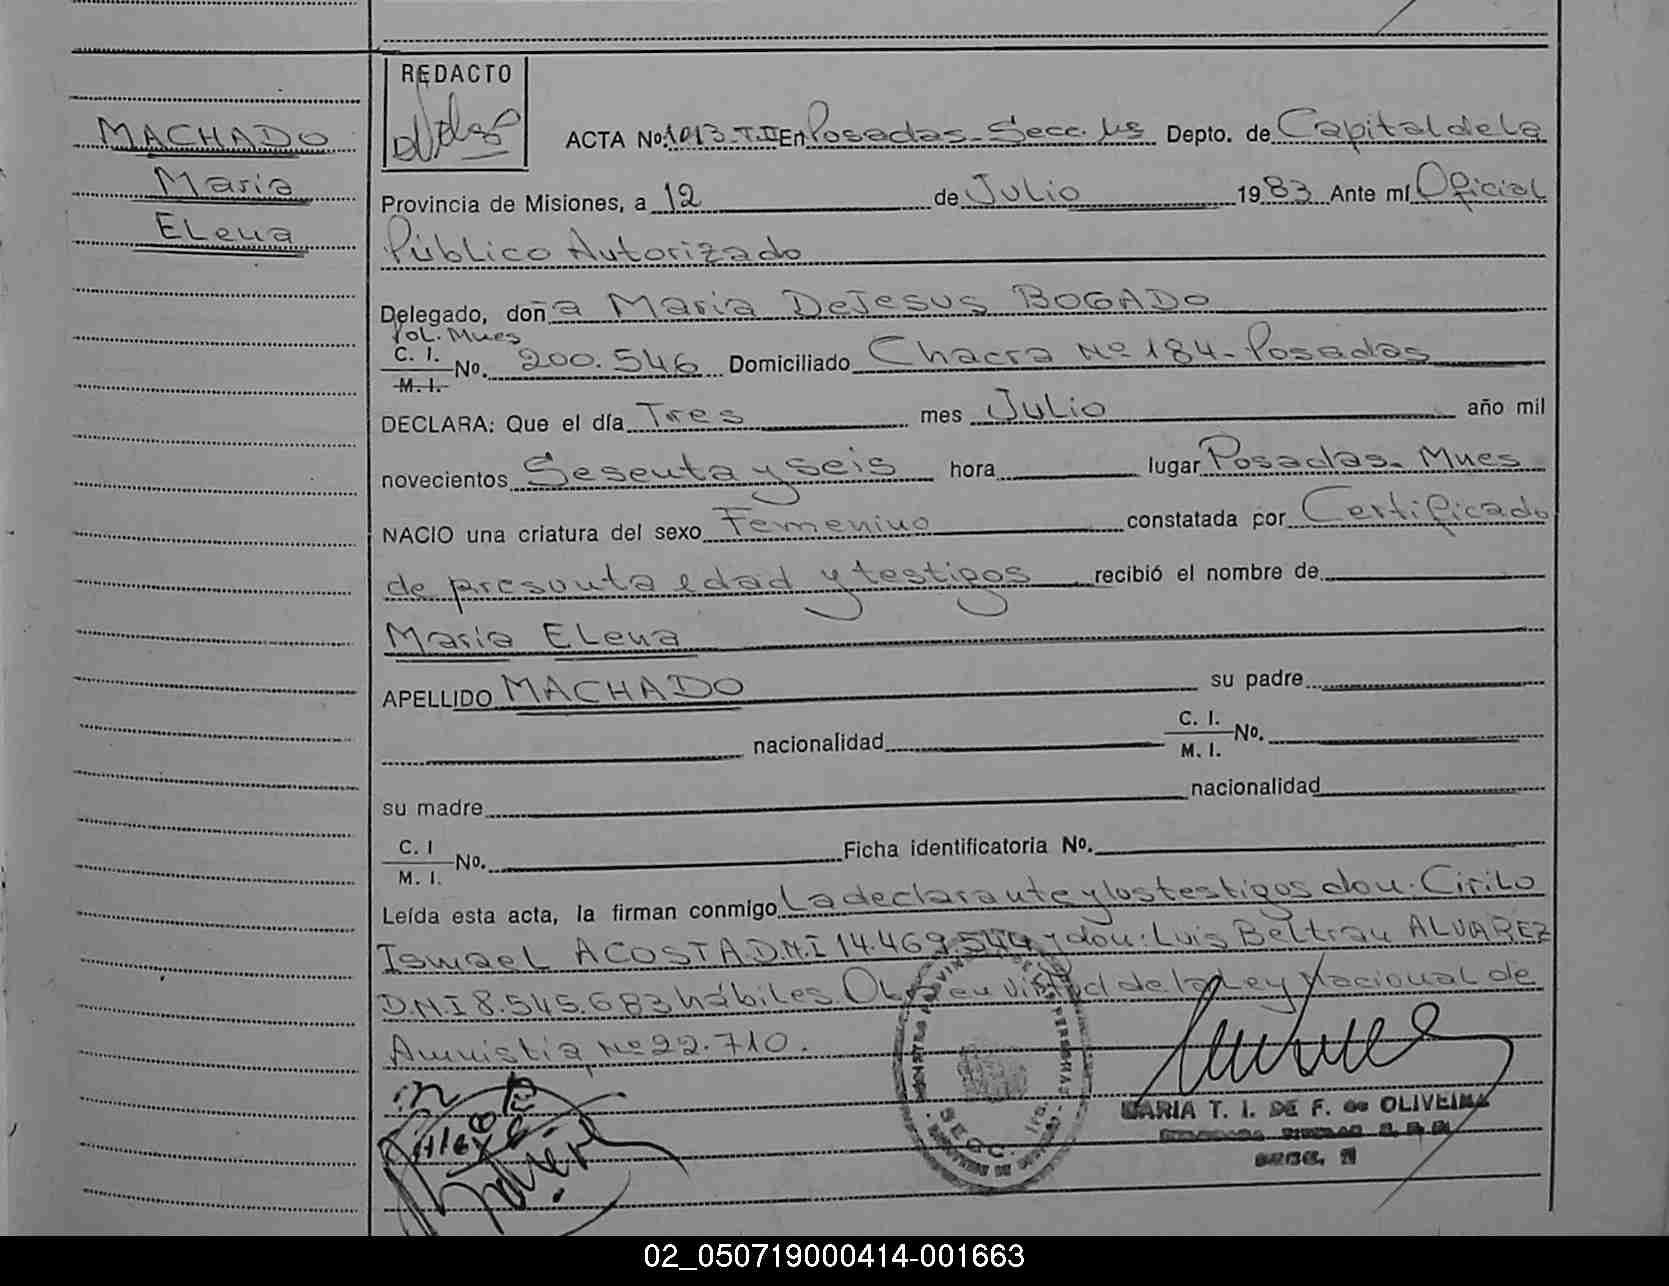 REDACTO
MACHADO
Maria
ELena
ACTA No. 1013-T.II En Posadas-Secc. Depto. de Capital de La
Provincia de Misiones, a 12 de Julio 1983 Ante mí Oficial
Público Autorizado
Delegado, doña Maria DeJesus BOGADO
Pol. Mnes
C. I.
M. I. No. 200.546 Domiciliado Chacra Nº 184-Posadas
DECLARA: Que el día Tres mes Julio año mil
novecientos Sesenta y seis hora lugar Posadas. Mnes
NACIO una criatura del sexo Femenino constatada por Certificado
de presunta edad y testigos recibió el nombre de
Maria ELena
APELLIDO MACHADO su padre
nacionalidad C. I. M. I. No.
su madre nacionalidad
C. I M. I. No. Ficha identificatoria No.
Leída esta acta, la firman conmigo La declarante y los testigos don: Cirilo
Ismael ACOSTA D.N.I 14.469.544 y don: Luis Beltran ALVAREZ
D.N.I 8.545.683 hábiles. en virtud de la Ley Nacional de
Amnistia Nº 22.710.
MARIA T. I. DE F. de OLIVEIRA
SECC.
02_050719000414-001663